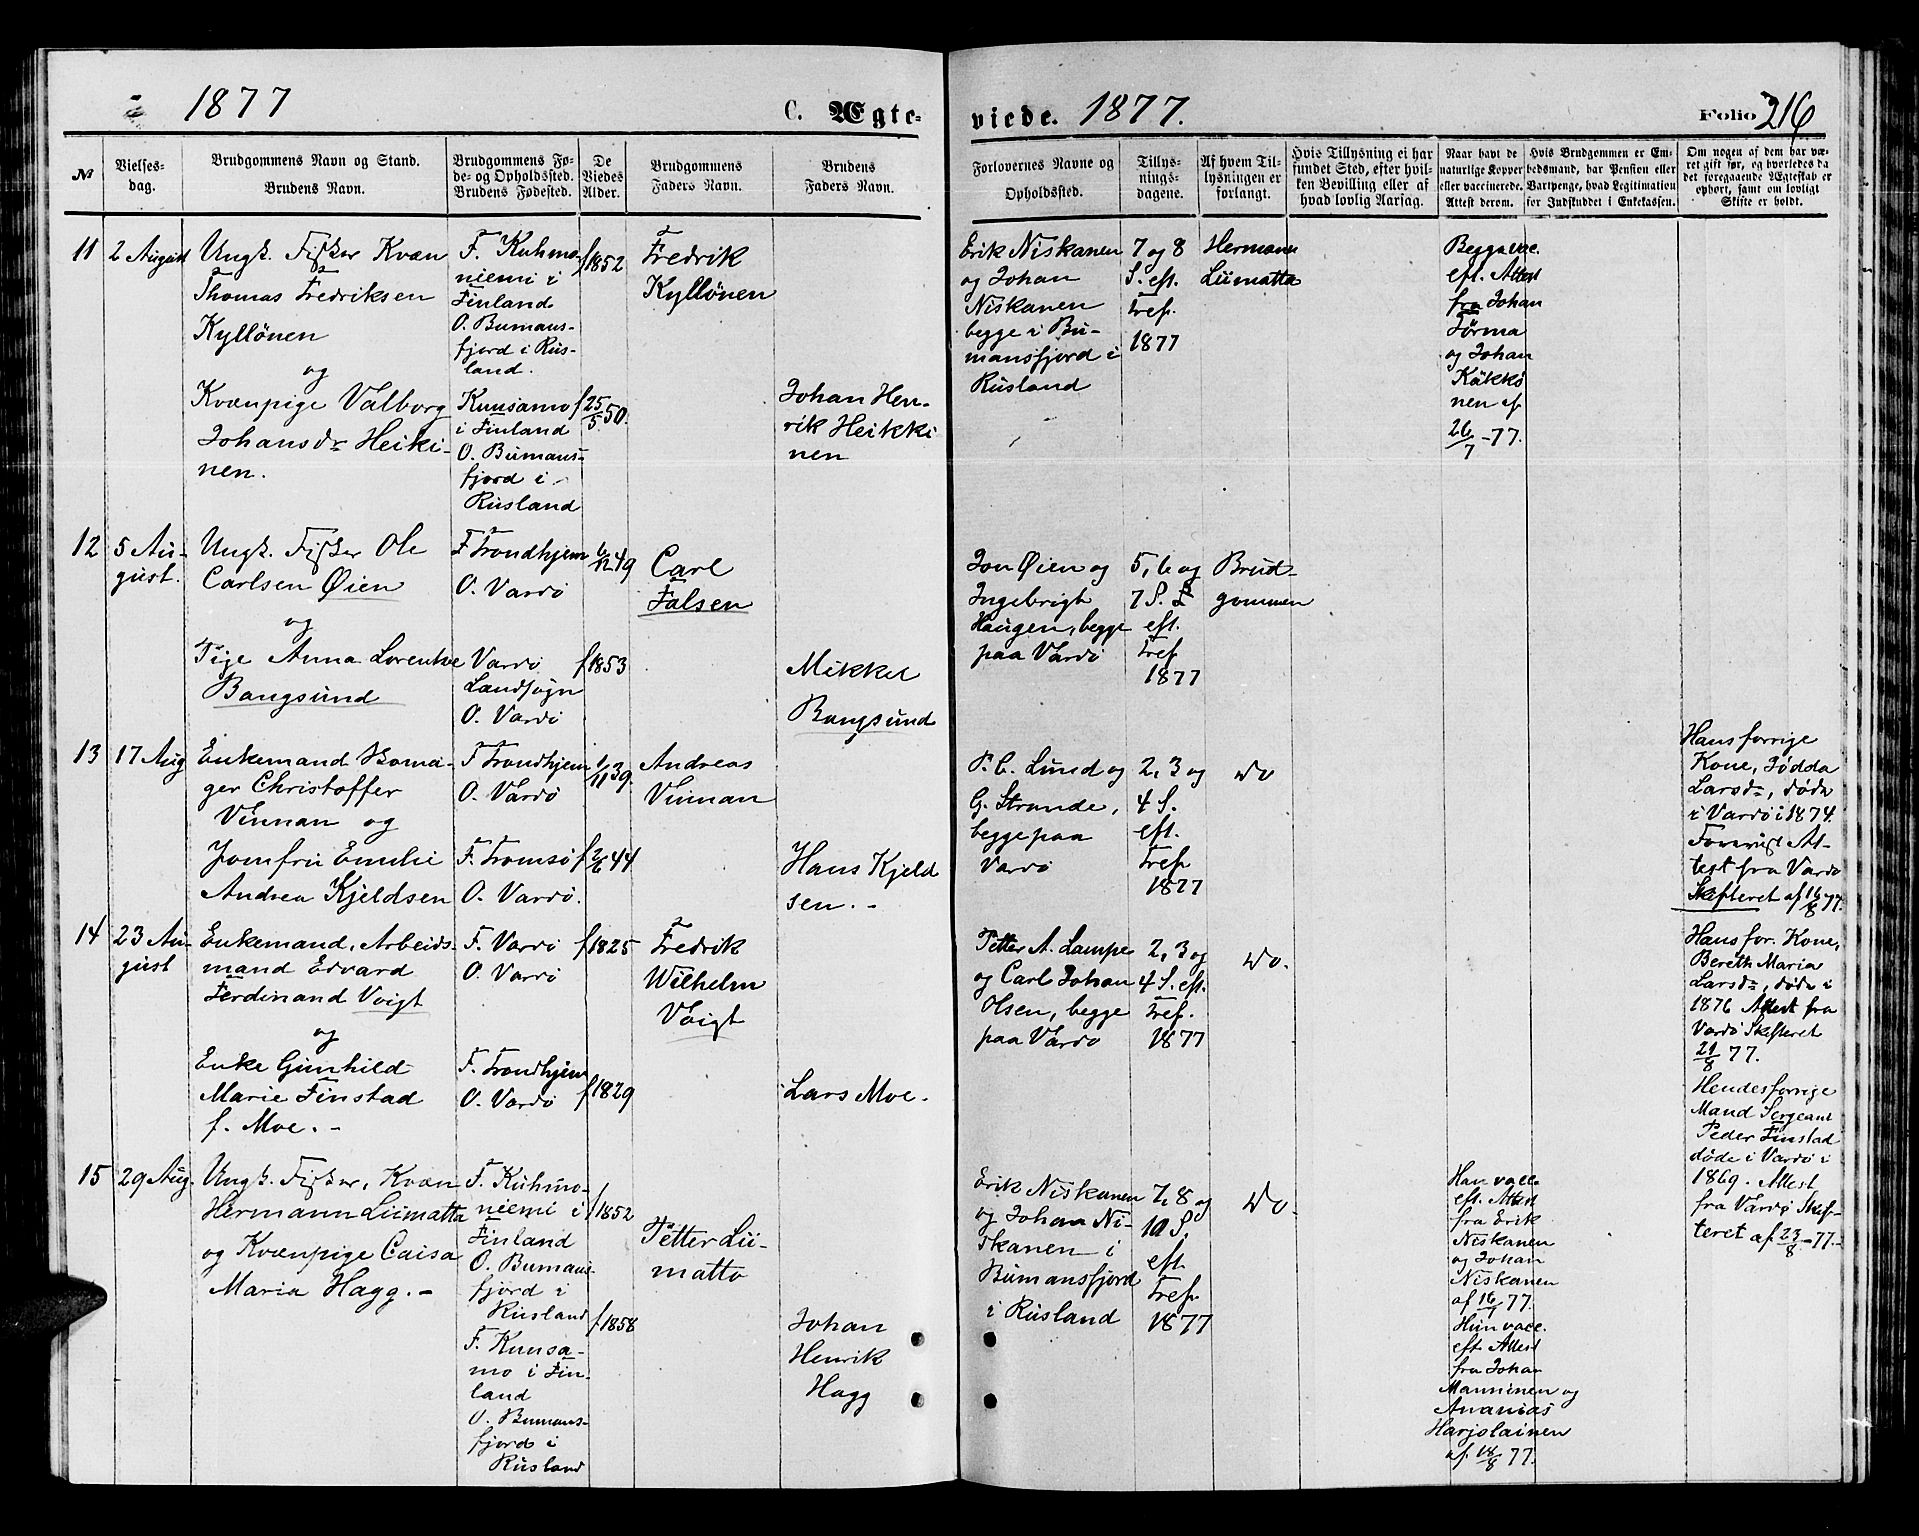 1877
C. Ægte-
viede. 1877.
Folio 216
№
Vielses-
dag.
Brudgommens Navn og Stand.
Brudens Navn.
Brudgommens Fø-
de- og Opholdssted.
Brudens Fødested.
De
Viedes
Alder.
Brudgommens
Faders Navn.
Brudens
Faders Navn.
Forlovernes Navne og
Opholdssted.
Tillys-
nings-
dagene.
Af hvem Til-
lysningen er
forlangt.
Hvis Tillysning ei har
fundet Sted, efter hvil-
ken Bevilling eller af
hvad lovlig Aarsag.
Naar havt de
naturlige Kopper
eller vaccinerede.
Attest derom.
Hvis Brudgommen er Em-
bedsmand, har Pension eller
Vartpenge, hvad Legitimation
for Indskuddet i Enkekassen.
Om nogen af dem har væ-
ret gift før, og hvorledes da
det foregaaende Ægteskab er
ophørt, samt om lovligt
Skifte er holdt.
11
2 August
Ungk. Fisker Kvæn
Thomas Fredriksen
Kyllönen
og
Kvænpige Valborg
Johansdr Heiki-
nen.
F. Kuhmo-
niemi i
Finland
O. Bumans-
fjord i Rus-
land.
Kuusamo
i Finland
O. Bumans-
fjord i
Rusland
f 1852
f 25/5 50.
Fredrik
Kyllönen
Johan Hen-
rik Heikki
nen
Erik Niskanen
og Johan
Niskanen
begge i Bu-
mansfjord i
Rusland
7 og 8
S. eft.
Tref.
1877
Hermann
Liimatta
Begge vac.
eft. Attest
fra Johan
Törma
og Johan
Käkkö
nen af
26/7 - 77.
12
5 Au-
gust.
Ungk. Fisker Ole
Carlsen Øien
og
Pige Anna Lorentse
Bangsund
F Trondhjem
O. Vardö
Vardö
Landsogn
O. Vardö
6/12 49
f 1853
Carl
Falsen
Mikkel
Bangsund
Jon Øien og
Ingebrigt
Haugen, begge
paa Vardö
5, 6 og
7 S.
eft.
Tref
1877
Brud-
gommen
13
17 Aug
Enkemand Skoma-
ger Christoffer
Vinnan og
Jomfru Emilie
Andrea Kjeldsen
F Trondhjem
O. Vardö
F. Tromsö
O. Vardö.
1/11 39.
f 2/6 44
Andreas
Vinnan
Hans Kjeld
sen. -
P. C. Lund og
G. Strande,
begge paa
Vardö
2, 3 og
4 S.
eft.
Tref
1877
Do
Hans forrige
Kone, Jødda
Larsdr, døde
i Vardö i 1874.
Forevist At-
test fra Vardö
Skifteret af 16/8 77.
14
23 Au-
gust
Enkemand, Arbeids-
mand Edvard
Ferdinand Voigt
og
Enke Gunhild
Marie Finstad
f. Moe. -
F. Vardö
O. Vardö
F. Trondhjem
O. Vardö
f 1825
f 1829
Fredrik
Wilhelm
Voigt
Lars Moe.
Petter A. Lampe
og Carl Johan
Olsen, begge
paa Vardö
2, 3 og
4 S. eft.
Tref.
1877
Do.
Hans for. Kone,
Bereth Maria
Larsdr, døde i
1876 Attest fra
Vardö Skifteret
21/8 77.
Hendes forrige
Mand Sergeant
Peder Finstad
døde i Vardö i
1869. Attest
fra Vardö Skif-
teret af 23/8 - 77. -
15
29 Aug.
Ungk. Fisker, Kvæn
Hermann Liimatta
og Kvænpige Caisa
Maria Hagg. -
F. Kuhmo-
niemi i
Finland
O. Bumans-
fjord i
Rusland
F. Kuusa-
mo i Fin-
land
O. Bumans-
fjord i
Rusland
f 1852
f 1858
Petter Lii-
matto
Johan
Henrik
Hagg
Erik Niskanen
og Johan Ni-
skanen i
Bumansfjord
i Rusland
7, 8 og
10 S.
eft.
Tref
1877
Do.
Han vacc.
eft. Attest
fra Erik
Niskanen
og Johan
Niskanen
af 16/7 77.
Hun vacc.
eft. Attest
fra Johan
Manninen og
Ananias
Harjolainen
af 18/8 77.